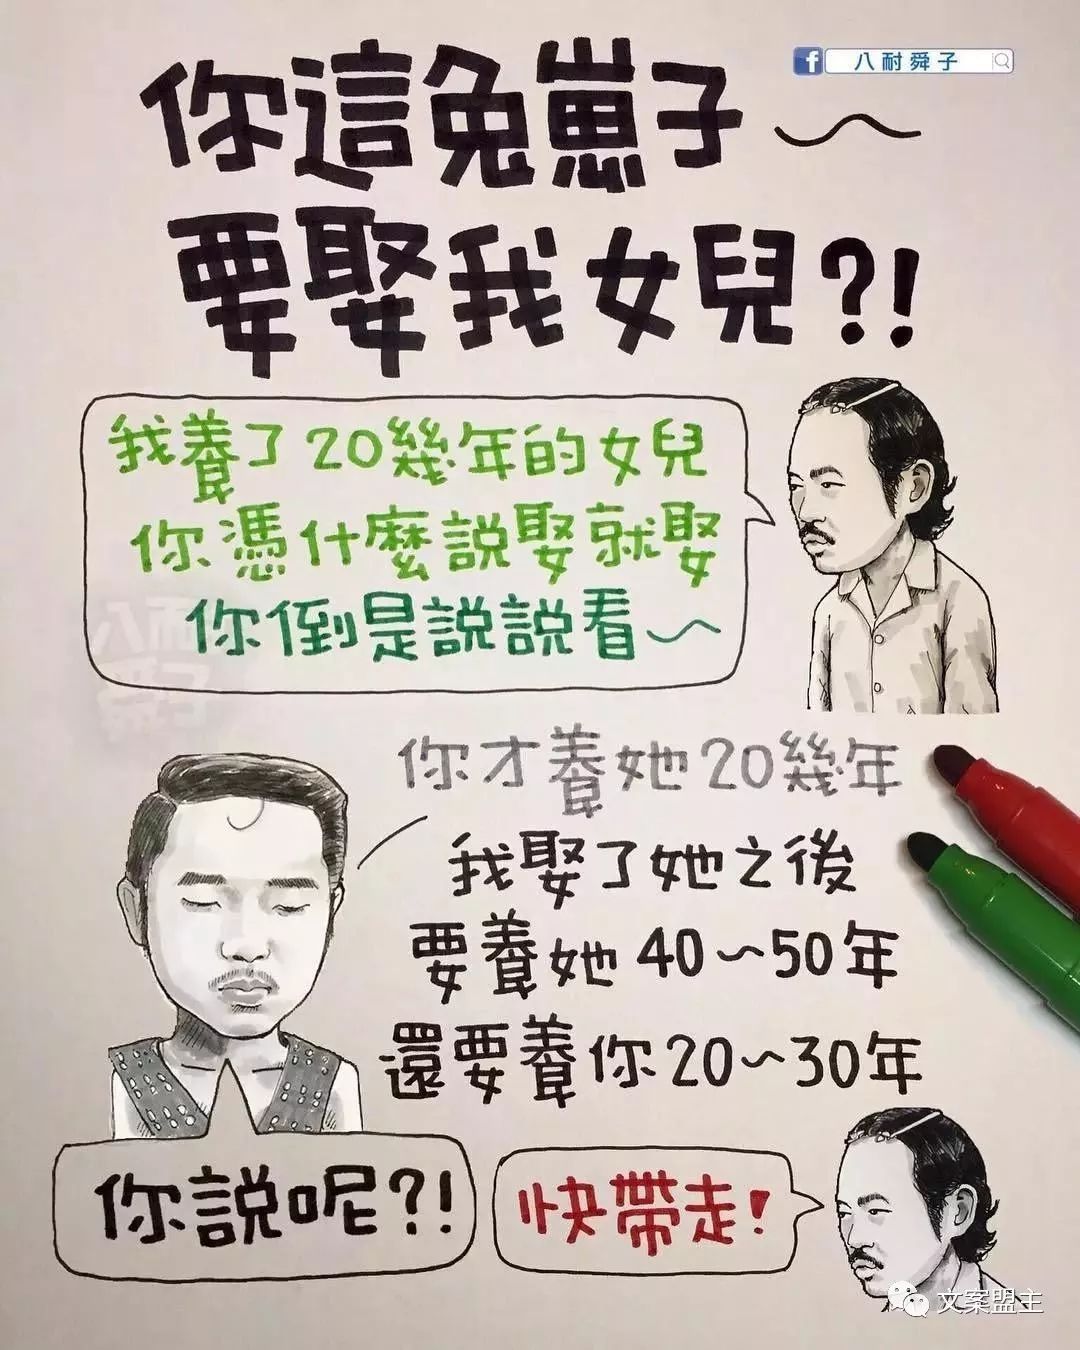 八耐舜子
你這兔崽子～
要娶我女兒?!
我養了20幾年的女兒
你憑什麼說娶就娶
你倒是說說看～
八耐
舜子
你才養她20幾年
我娶了她之後
要養她40~50年
還要養你20~30年
你說呢?!
快帶走!
文案盟主